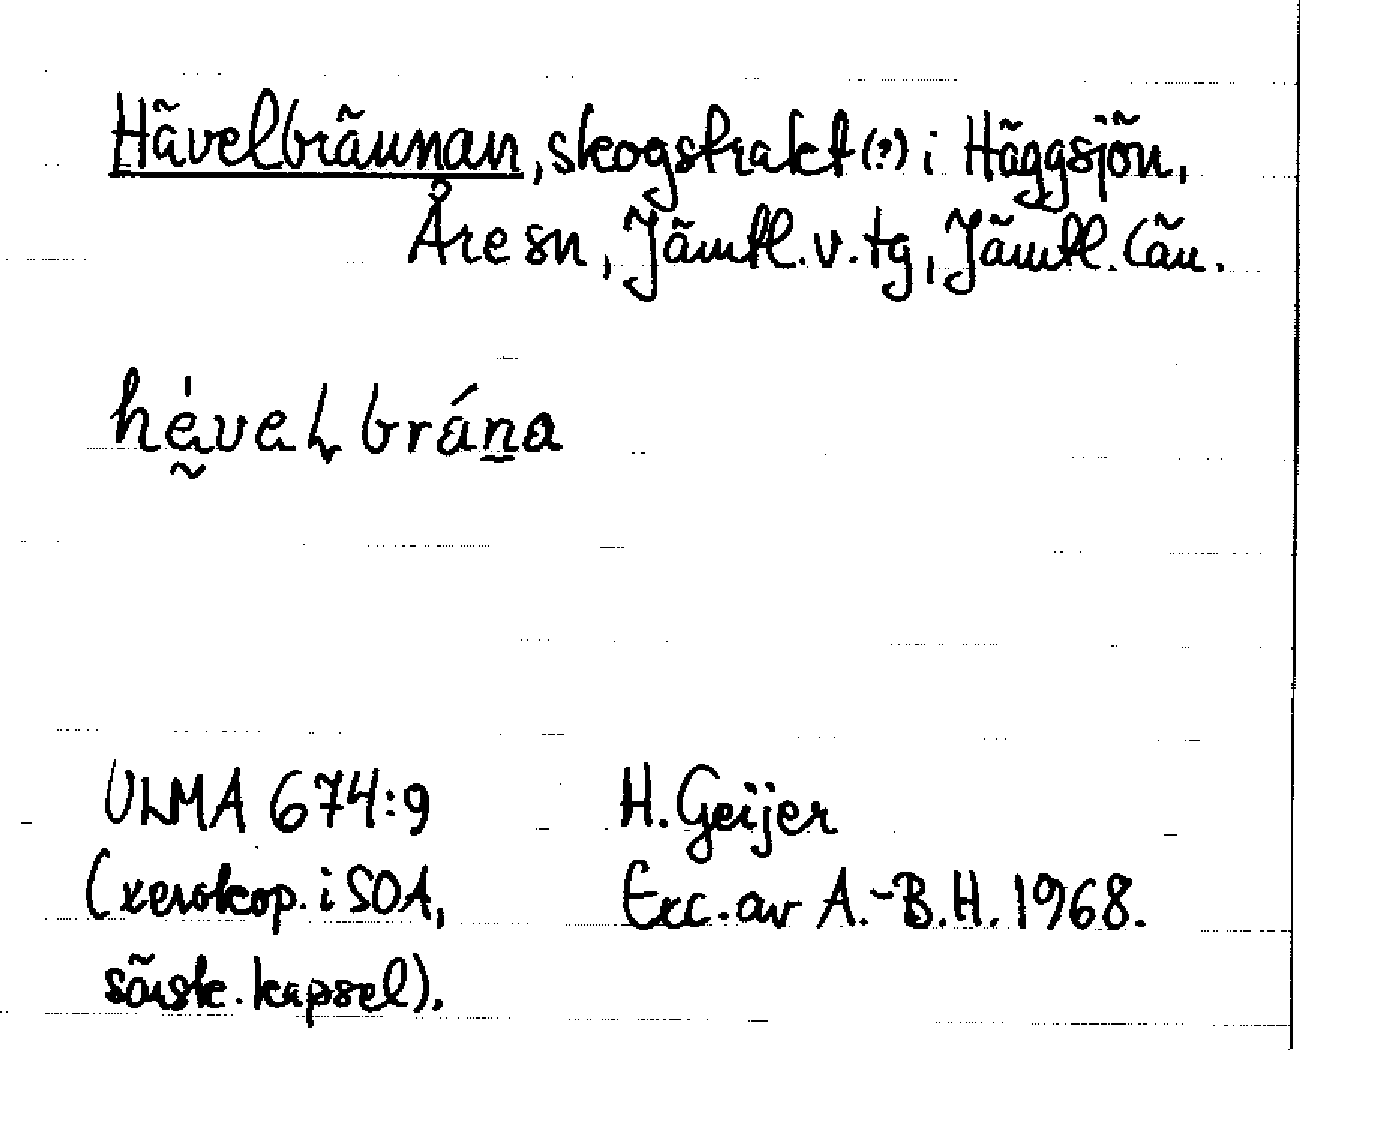 Hävelbräunan, skogstrakt (?) i Häggsjön,
Åre sn, Jämtl. v. tg, Jämtl. län.
ULMA 674:9
(xerokop. i SOA,
särsk. kapsel).
H. Geijer
Exc. av A.-B.H. 1968.